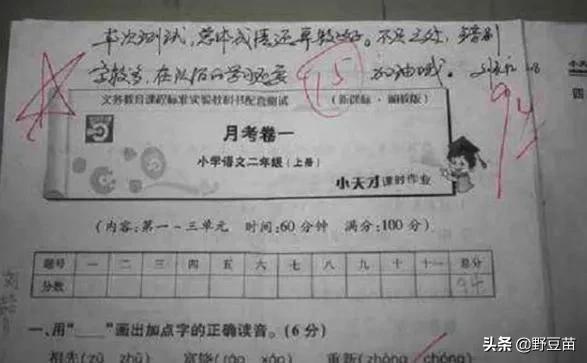 本次测试,总体成绩还算较好。不足之处,错别
字较多,在以后的学习还要 加油哦。
15
94
义务教育课程标准实验教科书配套测试 (新课标·湘教版)
月考卷一
小学语文二年级(上册)
小天才课时作业
(内容:第一~三单元 时间:60分钟 满分:100分)
题号 一 二 三 四 五 六 七 八 九 十 十一 总分
分数 94
一、用“___”画出加点字的正确读音。(6分)
祖先(zǔ zhǔ) 富饶(ráo xáo) 重新(zhòng chóng)
四
头条 @野豆苗